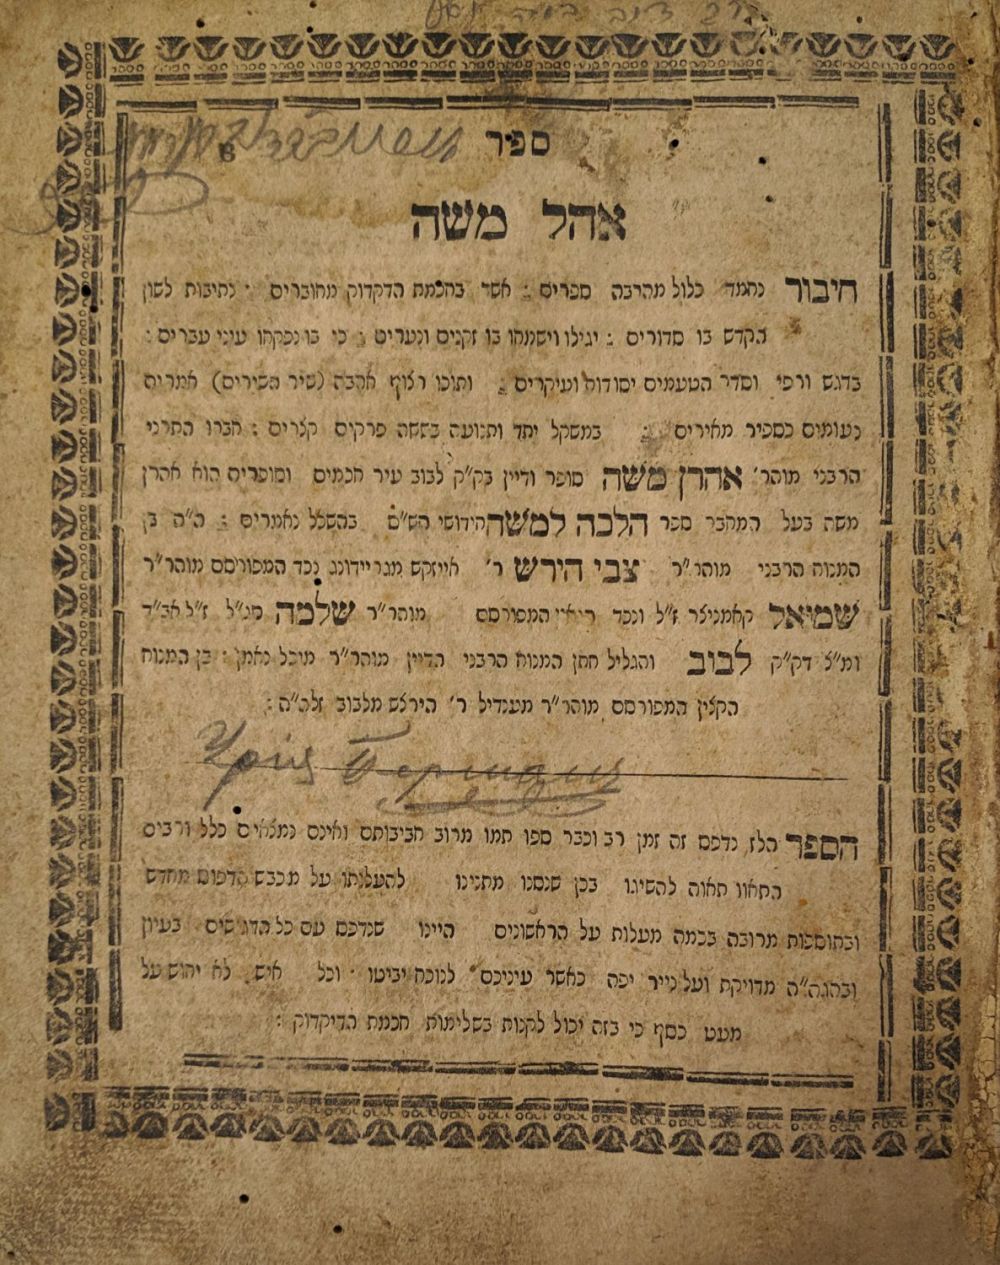 ספר
אהל משה
חיבור נחמד כלול מהרבה ספרים : אשר בחכמת הדקדוק מחוברים · נתיבות לשון
הקדש בו סדורים : יגילו וישמחו בו זקנים ונערים : כי בו נפקחו עיני עברים :
בדגש ורפי וסדר הטעמים יסודות ועיקרים : ותוכו רצוף אהבה (שיר השירים) אמרים
נעומים כספיר מאירים : במשקל יתד ותנועה בששה פרקים קצרים : חברו התרני
הרבני מוהר׳ אהרן משה סופר ודיין בק״ק לבוב עיר חכמים וסופרים הוא אהרן
משה בעל המחבר ספר הלכה למשה חידושי הש״ס בהשכל נאמרים : ה״ה בן
המנוח הרבני מוהר״ר צבי הירש ר׳ אייזקש מגריידונג נכד המפורסם מוהר״ר
שמואל קאמניצר ז״ל ונכד המפורסם מוהר״ר שלמה סג״ל ז״ל אב״ד
ומ״צ דק״ק לבוב והגליל חתן המנוח הרבני הדיין מוהר״ר מיכל נאמן : בן המנוח
הקצין המפורסם מוהר״ר מענדיל ר׳ הירצש מלבוב זלה״ה :
Урия
הספר הלז נדפס זה זמן רב וכבר ספו תמו מרוב חביבותם ואינם נמצאים כלל ורבים
התאוו תאוה להשיגו בכן שנסנו מתנינו להעלותו על מכבש הדפוס מחדש
ובתוספות מרובה בכמה מעלות על הראשונים היינו שנדפס עם כל הדגישים בעיון
ובהגה״ה מדויקת ועל נייר יפה כאשר עיניכם לנוכח יביטו · וכל איש לא יחוש על
מעט כסף כי בזה יכול לקנות בשלימות חכמת הדיקדוק :